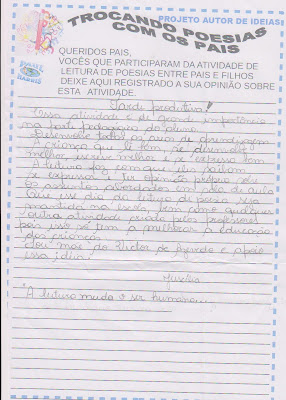 PROJETO AUTOR DE IDEIAS
TROCANDO POESIAS
COM OS PAIS
QUERIDOS PAIS,
VOCÊS QUE PARTICIPARAM DA ATIVIDADE DE
LEITURA DE POESIAS ENTRE PAIS E FILHOS
DEIXE AQUI REGISTRADO A SUA OPINIÃO SOBRE
ESTA ATIVIDADE.
Tarde produtiva!
Essa atividade é de grande importância
na parte pedagógica do aluno.
todas as áreas de aprendizagem
A criança que lê bem, se
melhor, escreve melhor e se expressa bem
A leitura faz com que eles saibam
se expressar e ter opinião própria sobre
os assuntos abordados em sala de aula
Que esse dia da leitura de poesia seja
bem como qualquer
outra atividade criada pela professora
pois isso só tem a melhorar a educação
das crianças.
Sou mãe do Victor de Azevedo e apoio
essa ideia.
"A leitura muda o ser humano"